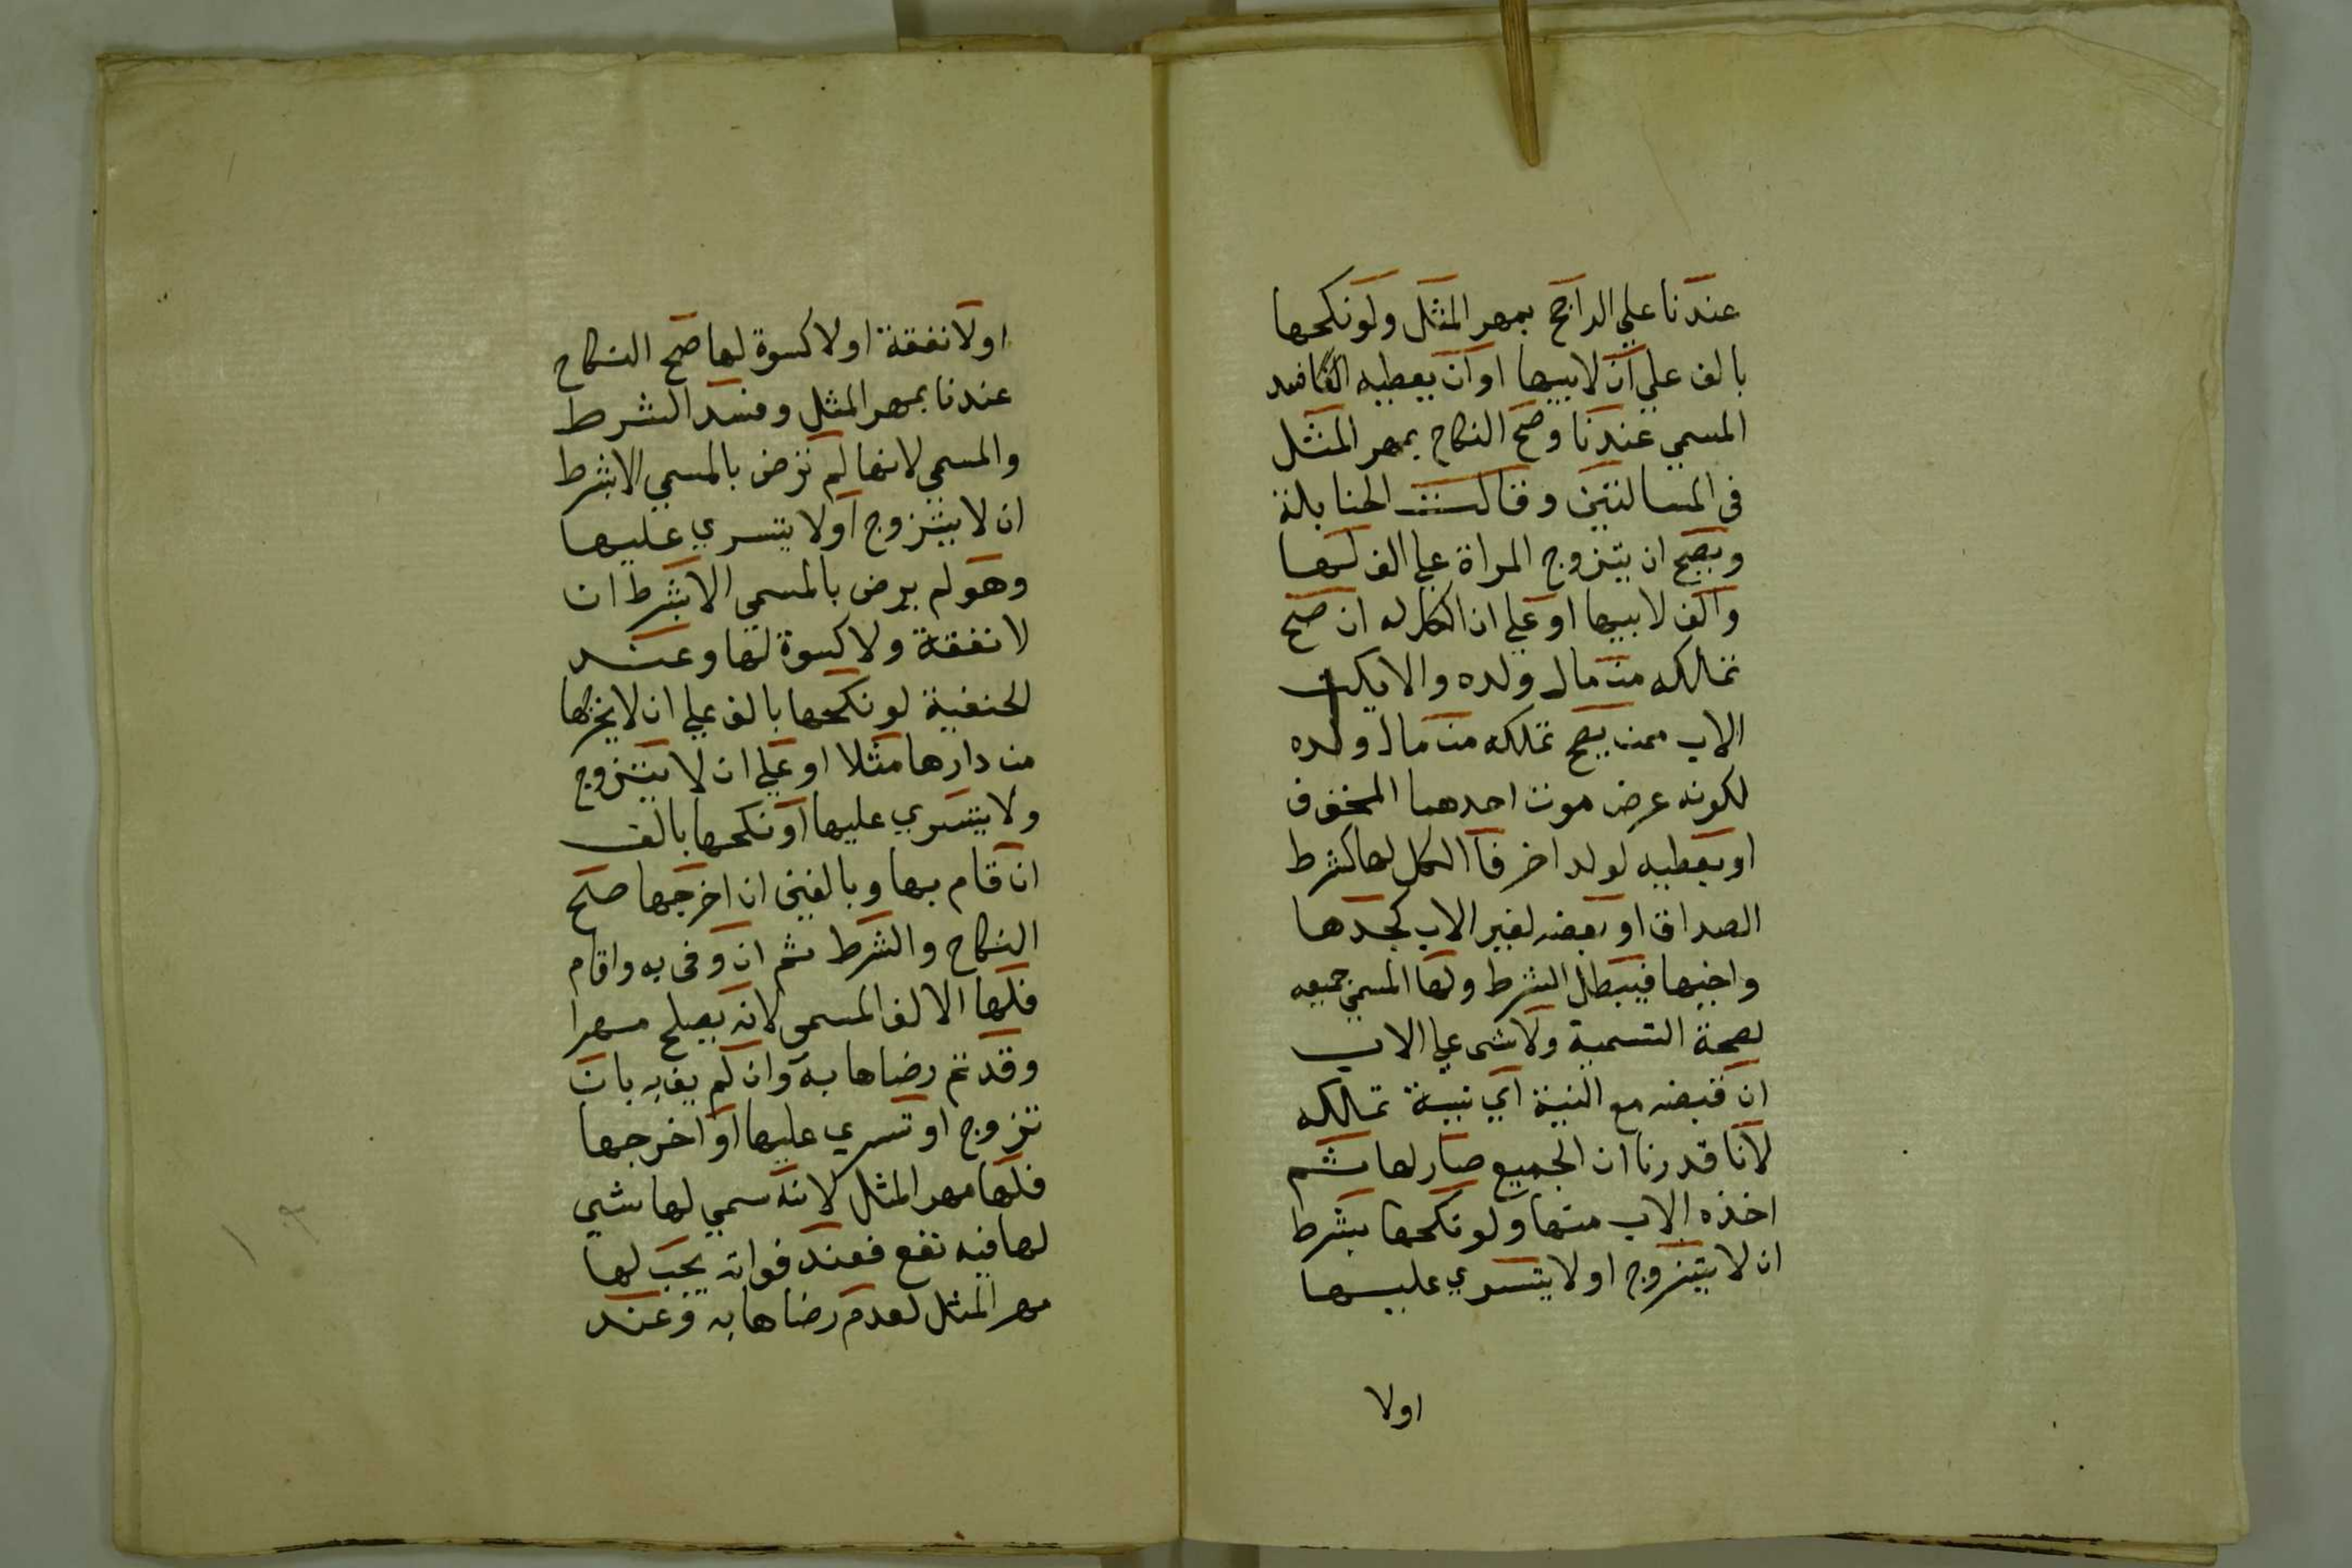 عندنا علي الراجح بمهر المثل ولو نكحها
بالف علي ان لابيها او ان يعطيه الفا فسد
المسمي عندنا وصح النكاح بمهر المثل
في المسالتين وقالت الحنابلة
ويصح ان يتزوج المراة علي الف لها
والف لابيها او علي ان الكل له ان صح
تملكه من مال ولده والا يكن
الاب ممن يصح تملكه من مال ولده
لكونه عرض موت احدهما المخوف
او يعطيه لولد اخر فا الكل لها كشرط
الصداق او بعضه لغير الاب كجدها
واخيها فيبطل الشرط ولها المسمي جميعه
لصحة التسمية ولا شي علي الاب
ان قبضه مع النية اي نية تملكه
لانا قدرنا ان الجميع صار لها ثم
اخذه الاب منها ولو نكحها بشرط
ان لا يتزوج او لا يتسري عليها
اولا
اولا نفقة او لا كسوة لها صح النكاح
عندنا بمهر المثل وفسد الشرط
والمسمي لانها لم ترض بالمسمي الا بشرط
ان لا يتزوج او لا يتسري عليها
وهو لم يرض بالمسمي الا بشرط ان
لا نفقة ولا كسوة لها وعند
الحنفية لو نكحها بالف علي ان لا يخرجها
من دارها مثلا او علي ان لا يتزوج
ولا يتسري عليها او نكحها بالف
ان قام بها وبالفين ان اخرجها صلح
النكاح والشرط ثم ان وفي به واقام
فلها الالف المسمي لانه يصلح مهرا
وقد تم رضاها به وان لم يف به بان
تزوج او تسري عليها او اخرجها
فلها مهر المثل لانه سمي لها شي
لها فيه نفع فعند فواته يجب لها
مهر المثل لعدم رضاها به وعند